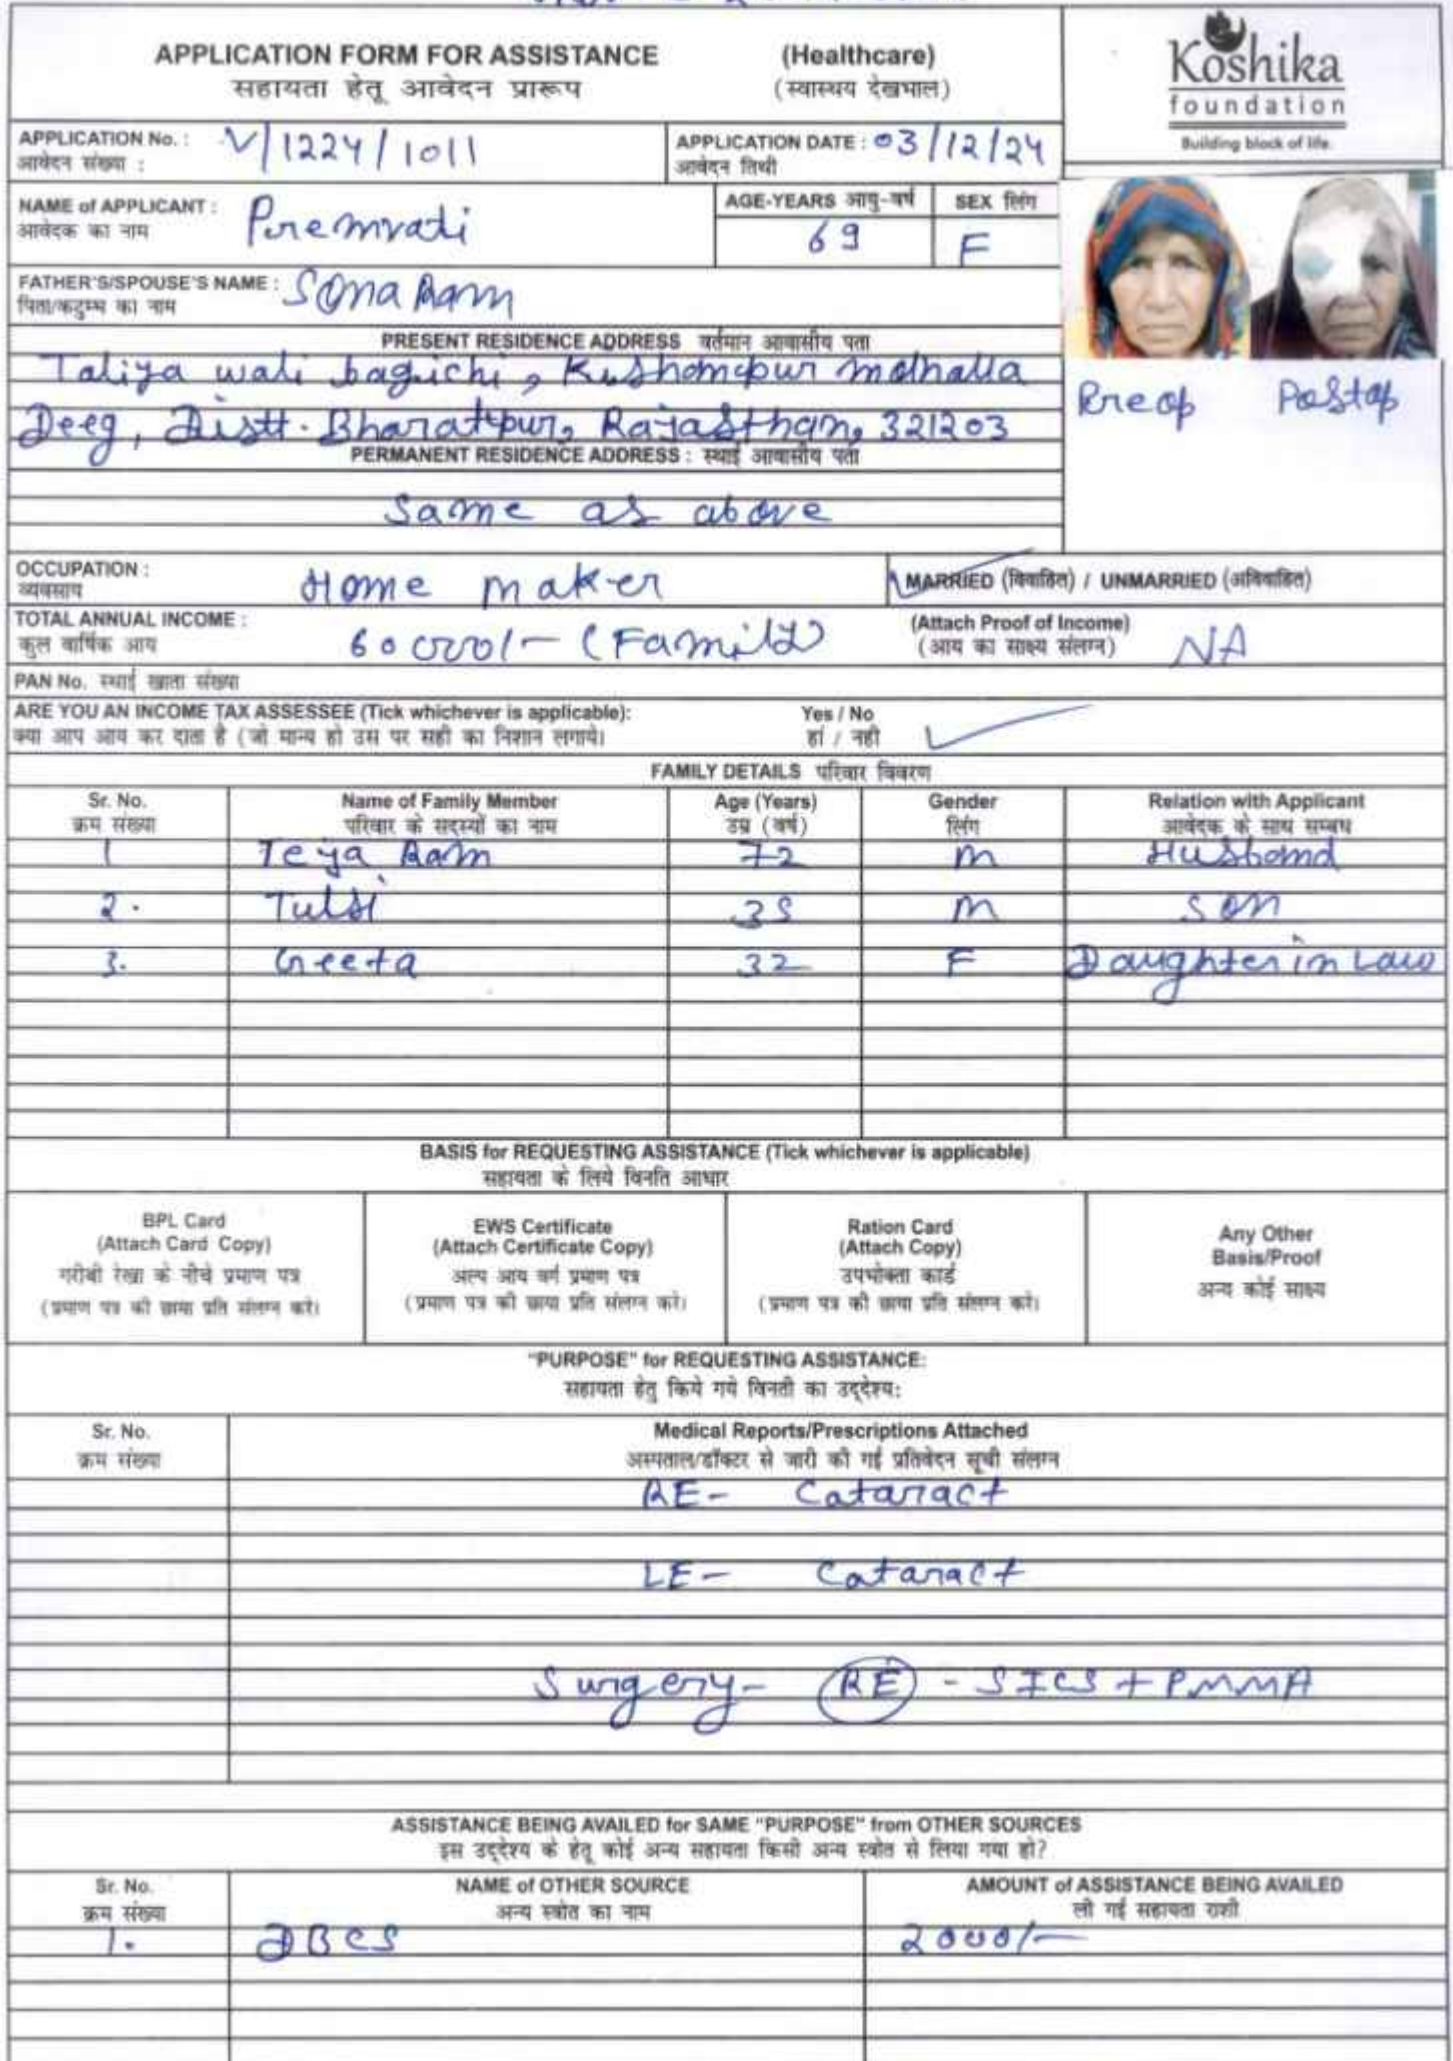 APPLICATION FORM FOR ASSISTANCE (Healthcare)
सहायता हेतू आवेदन प्रारूप (स्वास्थय देखभाल)
Koshika
foundation
Building block of life.
APPLICATION No. : V/1224/1011 APPLICATION DATE : 03/12/24
आवेदन संख्या : आवेदन तिथी
NAME of APPLICANT : Premvati AGE-YEARS आयु-वर्ष 69 SEX लिंग F
आवेदक का नाम
FATHER'S/SPOUSE'S NAME : Sona Ram
पिता/कटुम्ब का नाम
PRESENT RESIDENCE ADDRESS वर्तमान आवासीय पता
Taliya wali bagichi, Kushampur mohalla
Deeg, Distt. Bharatpur, Rajasthan, 321203
Preop Postop
PERMANENT RESIDENCE ADDRESS : स्थाई आवासीय पता
Same as above
OCCUPATION : Home maker MARRIED (विवाहित) / UNMARRIED (अविवाहित)
व्यवसाय
TOTAL ANNUAL INCOME : 60000/- (Family) (Attach Proof of Income) NA
कुल वार्षिक आय (आय का साक्ष्य संलग्न)
PAN No. स्थाई खाता संख्या
ARE YOU AN INCOME TAX ASSESSEE (Tick whichever is applicable): Yes / No
क्या आप आय कर दाता है (जो मान्य हो उस पर सही का निशान लगाये। हां / नही
FAMILY DETAILS परिवार विवरण
Sr. No. Name of Family Member Age (Years) Gender Relation with Applicant
क्रम संख्या परिवार के सदस्यों का नाम उम्र (वर्ष) लिंग आवेदक के साथ सम्बध
1 Teja Ram 72 M Husband
2. Tulsi 35 M Son
3. Geeta 32 F Daughter in Law
BASIS for REQUESTING ASSISTANCE (Tick whichever is applicable)
सहायता के लिये विनति आधार
BPL Card
(Attach Card Copy)
गरीबी रेखा के नीचे प्रमाण पत्र
(प्रमाण पत्र की छाया प्रति संलग्न करे।
EWS Certificate
(Attach Certificate Copy)
अल्प आय वर्ग प्रमाण पत्र
(प्रमाण पत्र की छाया प्रति संलग्न करे।
Ration Card
(Attach Copy)
उपभोक्ता कार्ड
(प्रमाण पत्र की छाया प्रति संलग्न करे।
Any Other
Basis/Proof
अन्य कोई साक्ष्य
"PURPOSE" for REQUESTING ASSISTANCE:
सहायता हेतु किये गये विनती का उद्देश्य:
Sr. No. Medical Reports/Prescriptions Attached
क्रम संख्या अस्पताल/डॉक्टर से जारी की गई प्रतिवेदन सूची संलग्न
RE- Cataract
LE- Cataract
Surgery- RE - SICS + PMMA
ASSISTANCE BEING AVAILED for SAME "PURPOSE" from OTHER SOURCES
इस उद्देश्य के हेतू कोई अन्य सहायता किसी अन्य स्त्रोत से लिया गया हो?
Sr. No. NAME of OTHER SOURCE AMOUNT of ASSISTANCE BEING AVAILED
क्रम संख्या अन्य स्त्रोत का नाम ली गई सहायता राशी
1. DBCS 2000/-